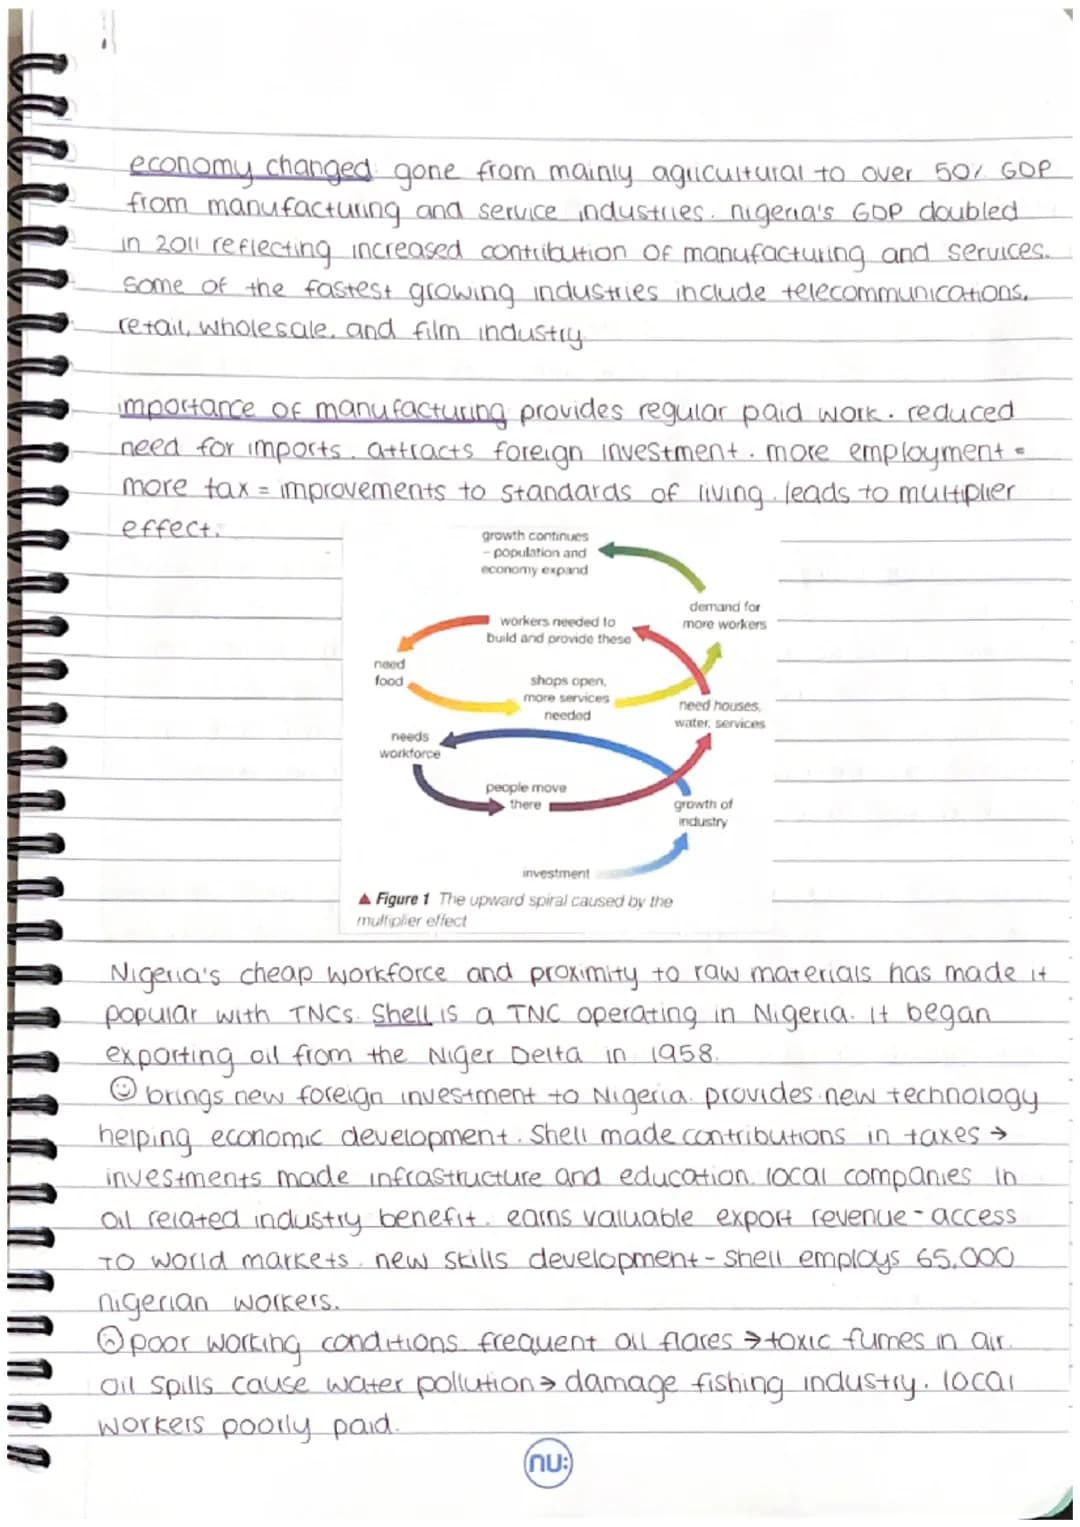 economy changed: gone from mainly agricultural to over 50% GDP
from manufacturing and service industries. nigeria's GDP doubled
in 2011 reflecting increased contribution of manufacturing and services.
some of the fastest growing industries include telecommunications,
retail, wholesale, and film industry
importance of manufacturing provides regular paid work. reduced
need for imports. attracts foreign investment. more employment =
more tax = improvements to standards of living. leads to multiplier
effect.
growth continues
– population and
economy expand
demand for
more workers
workers needed to
build and provide these
need
food
shops open,
more services
needed
need houses,
water, services
needs
workforce
people move
there
growth of
industry
investment
▲ Figure 1 The upward spiral caused by the
multiplier effect
Nigeria's cheap workforce and proximity to raw materials has made it
popular with TNCs. Shell is a TNC operating in Nigeria. It began
exporting oil from the Niger Delta in 1958.
☺ brings new foreign investment to Nigeria. provides new technology
helping economic development. Shell made contributions in taxes →
investments made infrastructure and education. local companies in
oil related industry benefit. earns valuable export revenue - access
to world markets. new skills development - Shell employs 65,000
nigerian workers.
☹ poor working conditions. frequent oil flares → toxic fumes in air.
oil spills cause water pollution → damage fishing industry. local
workers poorly paid.
nu: